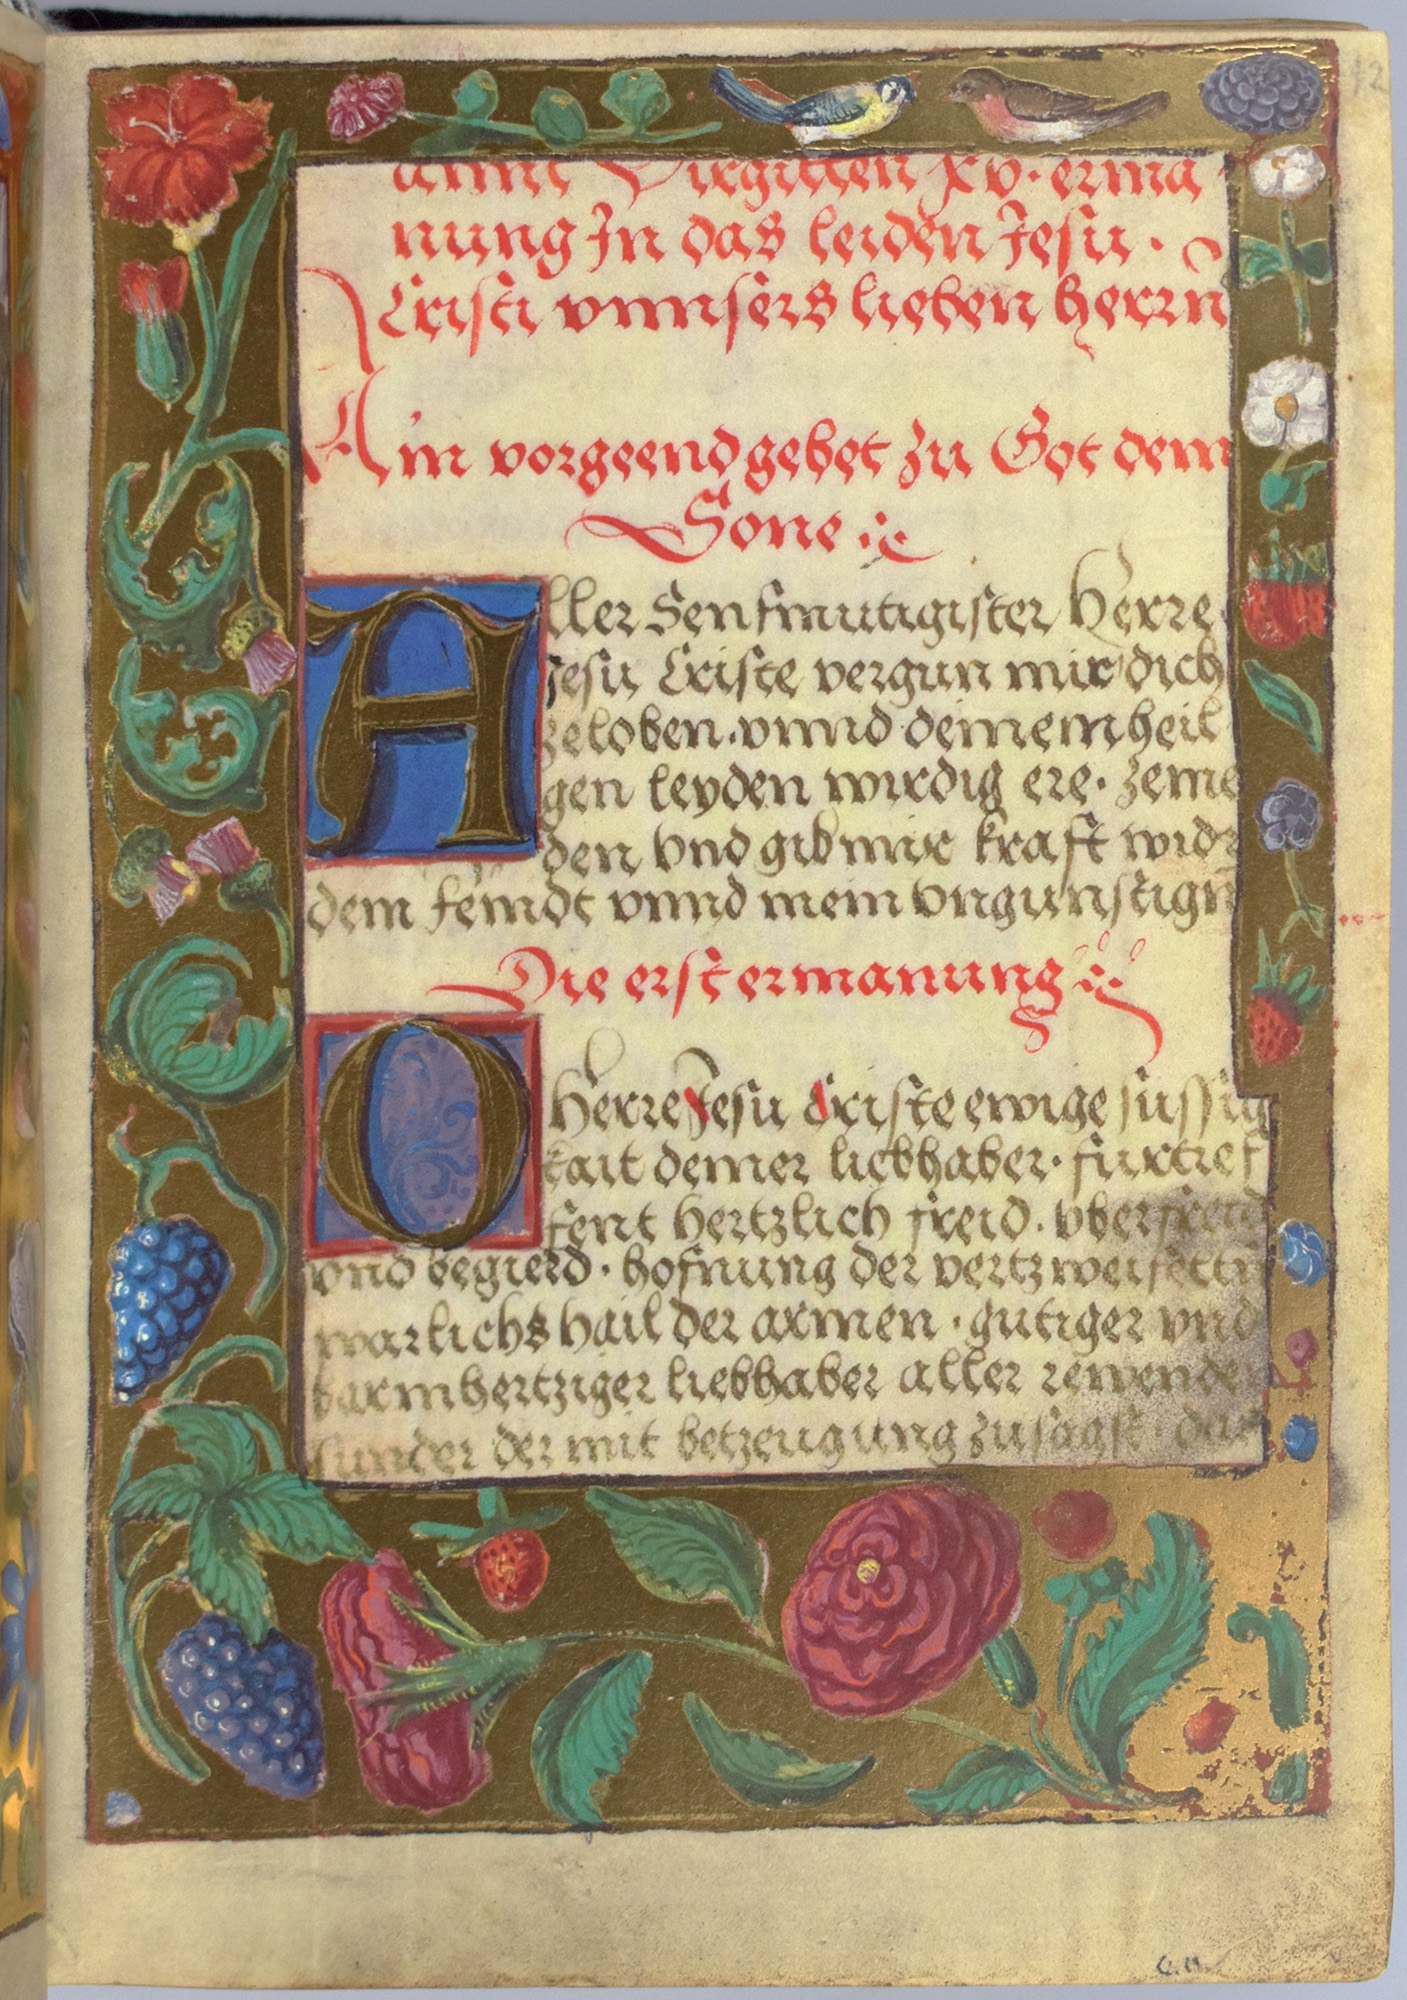 Birgitten xv. erma
nung In das leiden Jesu.
Cristi vnnsers lieben herrn
Ain vorgeend gebet zu Got dem
Sone
Aller Senfmutigister Herre
Jesu Criste vergun mir dich
zeloben. vnnd deinem heil
gen leyden wirdig ere. zeme
den vnd gib mir kraft wider
dem feindt vnnd mein vngunstign
Die erst ermanung
O herre Jesu Criste ewige sussig
kait deiner liebhaber. furtref
fent hertzlich freid. vberfreid
vnd begierd. hofnung der vertzweifettn
warlichs hail der armen. gutiger vnd
barmhertziger liebhaber aller rewenden
sunder der mit betzeugung zusagst das
12